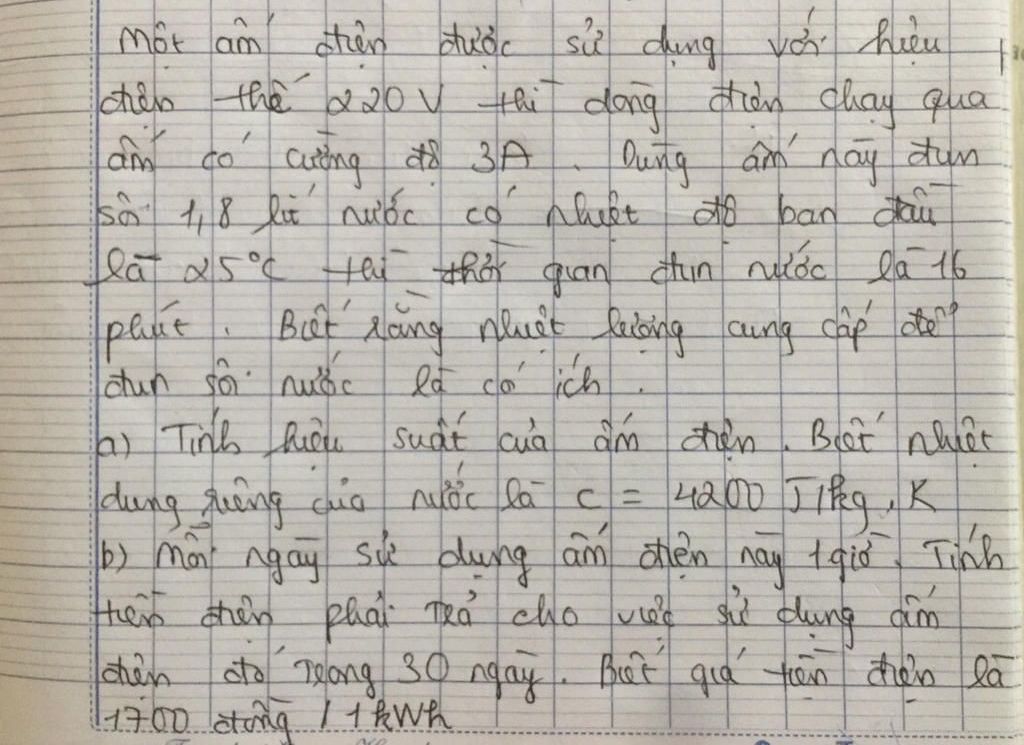 Một ấm điện được sử dụng với hiệu
điện thế 220V thì dòng điện chạy qua
ấm có cường độ 3A. Dùng ấm này đun
sôi 1,8 lít nước có nhiệt độ ban đầu
là 25°C thì thời gian đun nước là 16
phút. Biết rằng nhiệt lượng cung cấp để
đun sôi nước là có ích.
a) Tính hiệu suất của ấm điện. Biết nhiệt
dung riêng của nước là c = 4200 J/kg.K
b) Mỗi ngày sử dụng ấm điện này 1 giờ. Tính
tiền điện phải trả cho việc sử dụng ấm
điện đó trong 30 ngày. Biết giá tiền điện là
1700 đồng / 1kWh